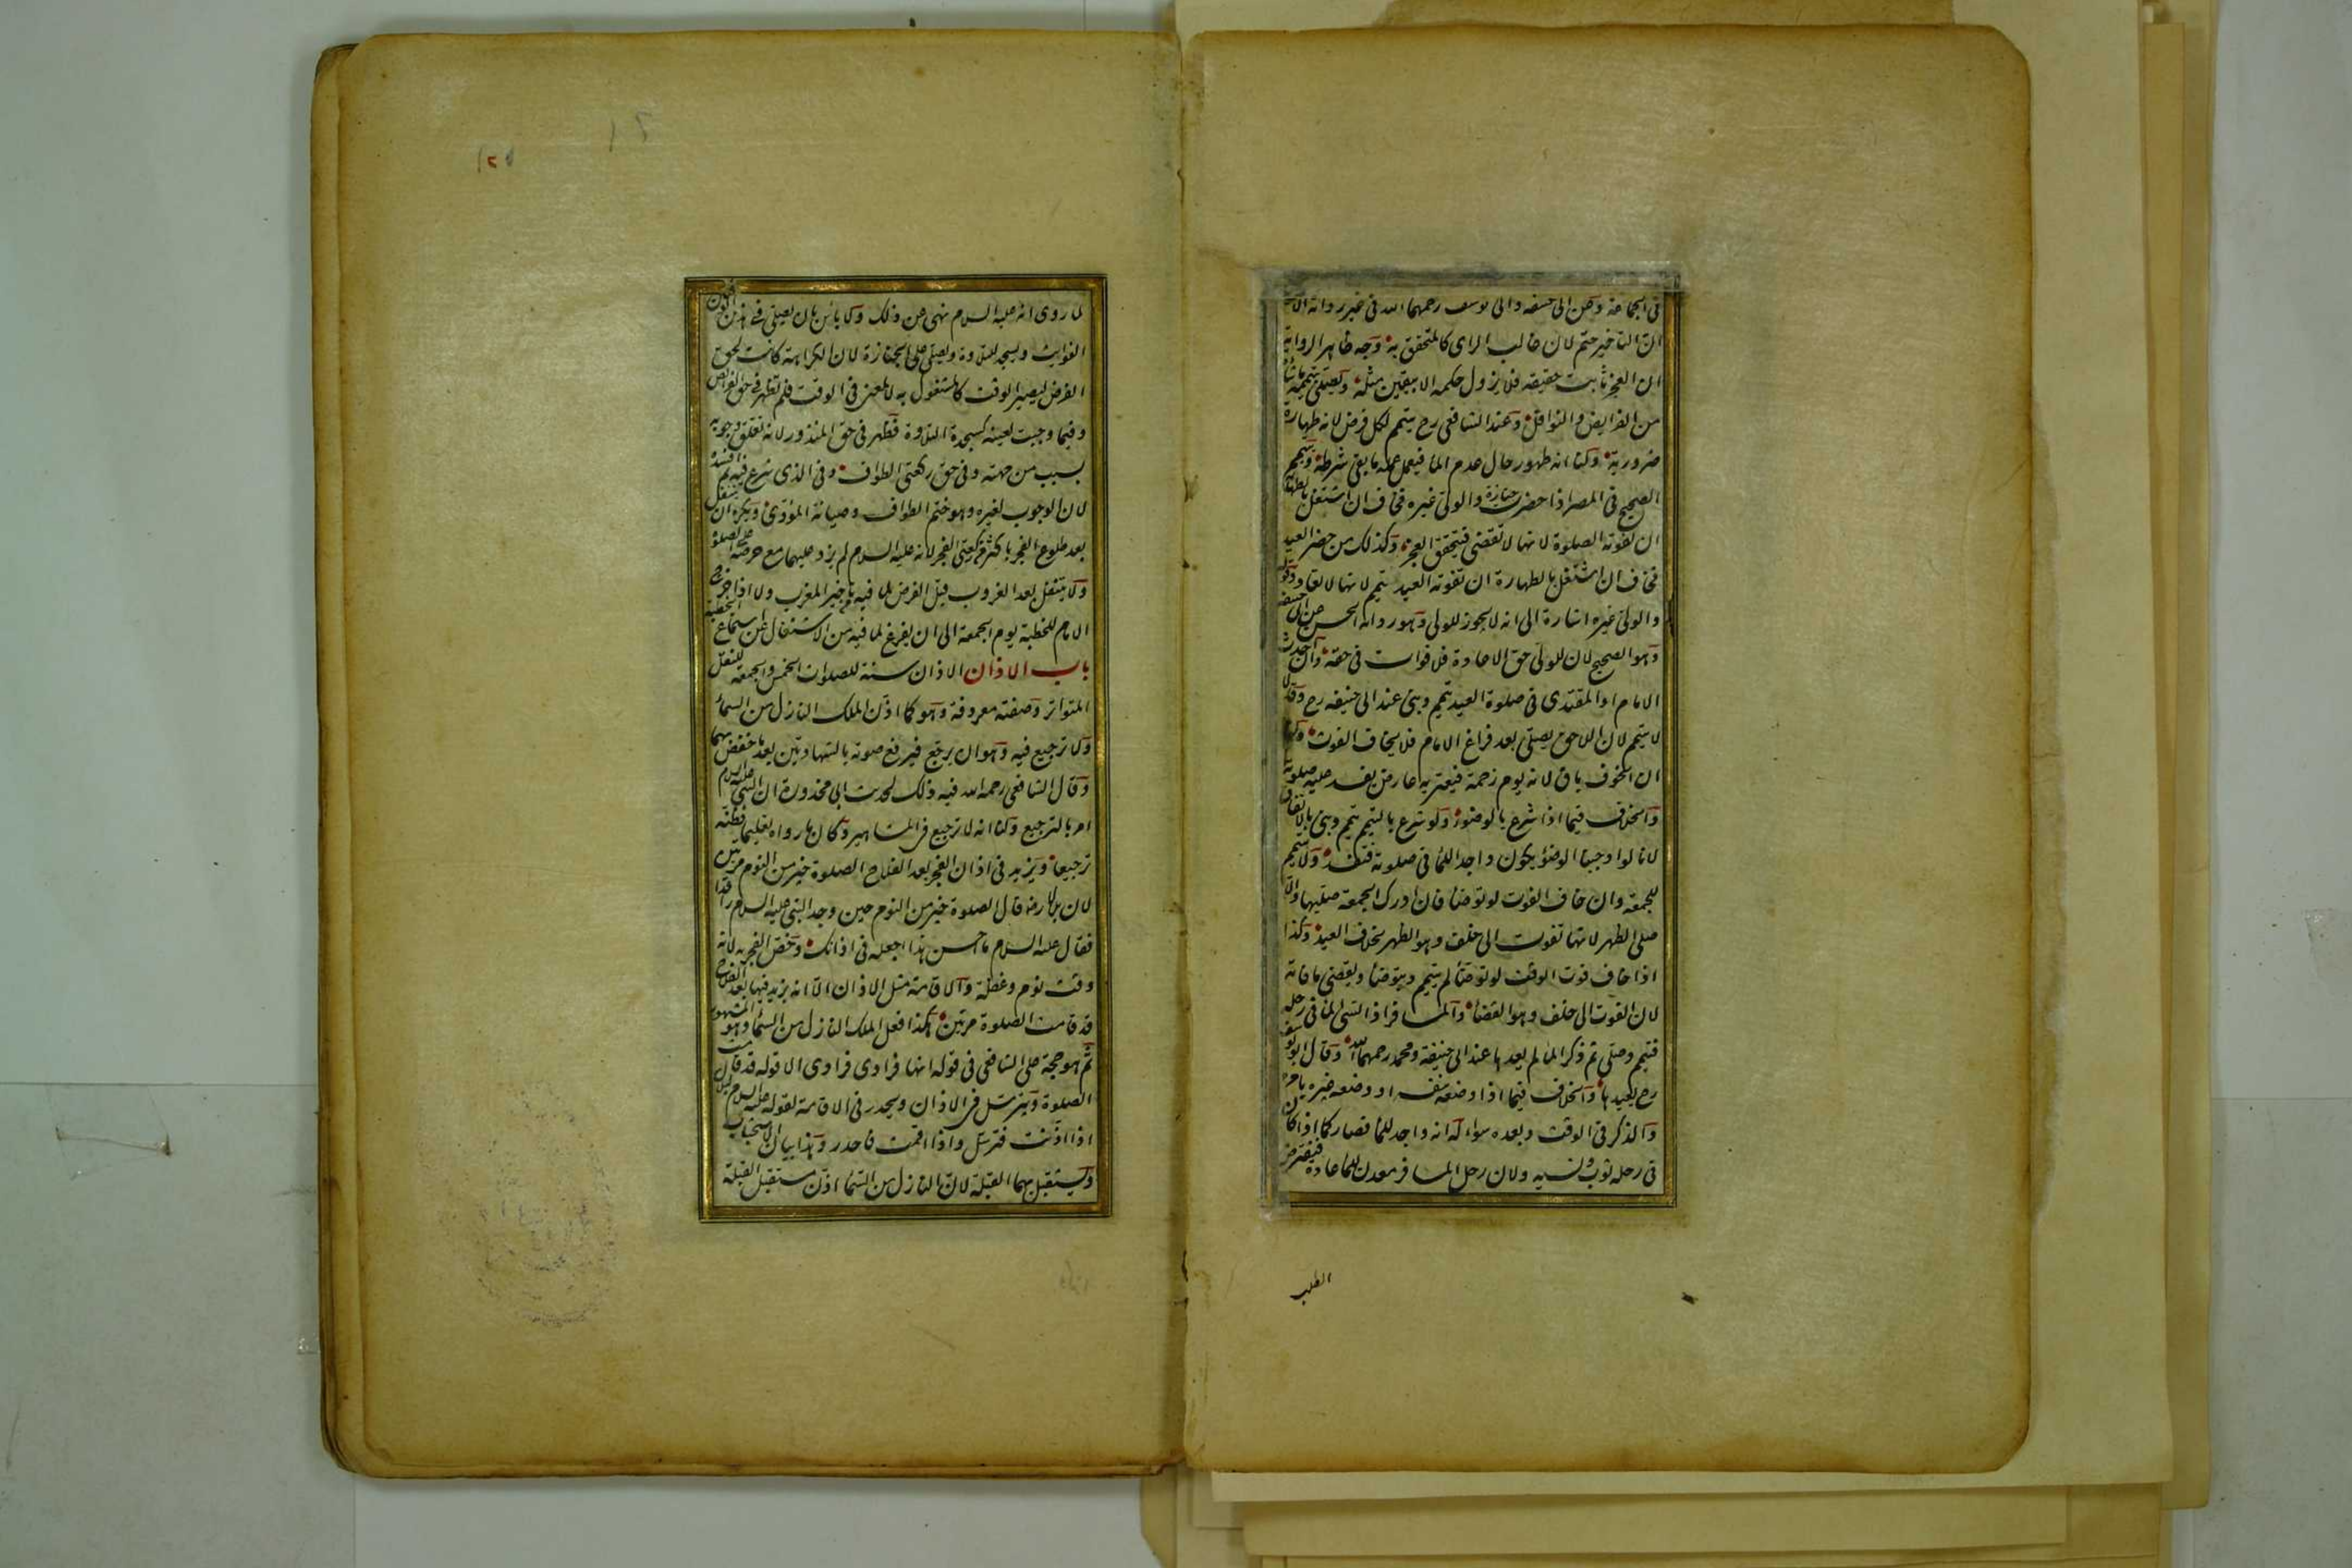 فى الجماعة وعن ابى حنيفه وابى يوسف رحمهما الله فى غير رواية الاصول
ان التاخير حتم لان غالب الراى كالمتحقق به وجه ظاهر الرواية
ان العجز ثابت حقيقه فلا يزول حكمه الا بيقين مثله ويصلى بتيممه ما شاء
من الفرايض والنوافل وعند الشافعى رح يتيمم لكل فرض لانه طهارة
ضرورية ولنا انه طهور حال عدم الماء فيعمل عمله ما بقى شرطه ويتيمم
الصحيح فى المصر اذا حضرت جنازة والولى غيره فخاف ان اشتغل بالطهارة
ان تفوته الصلوة لانها لا تقضى فيتحقق العجز وكذلك من حضر العيد
فخاف ان اشتغل بالطهارة ان تفوته العيد يتيمم لانها لا تعاد وقوله
والولى غيره اشارة الى انه لا يجوز للولى وهو رواية الحسن عن ابى حنيفه
وهو الصحيح لان للولى حق الاعادة فلا فوات فى حقه وان احدث
الامام او المقتدى فى صلوة العيد تيمم وبنى عند ابى حنيفه رح وقالا
لا يتيمم لان اللاحق يصلى بعد فراغ الامام فلا يخاف الفوت وله
ان الخوف باق لانه يوم زحمة فيعتريه عارض يفسد عليه صلوته
والخلاف فيما اذا شرع بالوضوء ولو شرع بالتيمم تيمم وبنى بالاتفاق
لانا لو اوجبنا الوضوء يكون واجدا للماء فى صلوته فتفسد ولا يتيمم
للجمعة وان خاف الفوت لو توضا فان ادرك الجمعة صليها والا
صلى الظهر لانها تفوت الى خلف وهو الظهر بخلاف العيد وكذا
اذا خاف فوت الوقت لو توضا لم يتيمم ويتوضا ويقضى ما فاته
لان الفوت الى خلف وهو القضاء والمسافر اذا نسى الماء فى رحله
فتيمم وصلى ثم ذكر الماء لم يعدها عند ابى حنيفة ومحمد رحمهما الله وقال ابو يوسف
رح يعيدها والخلاف فيما اذا وضعه بنفسه او وضعه غيره بامره
والذكر فى الوقت وبعده سواء له انه واجد للماء فصار كما اذا كان
فى رحله ثوب ونسيه ولان رحل المسافر معدن للماء عادة فيفترض
الطلب
لما روى انه عليه السلام نهى عن ذلك ولا باس بان يصلى فى هذين الوقتين
الفوايت ويسجد للتلاوة ويصلى على الجنازة لان الكراهة كانت لحق
الفرض ليصير الوقت كالمشغول به لا لمعنى فى الوقت فلم تظهر فى حق الفرائض
وفيما وجبت لعينه كسجدة التلاوة فظهر فى حق المنذور لانه تعلق وجوبه
بسبب من جهته وفى حق ركعتى الطواف وفى الذى شرع فيه ثم افسده
لان الوجوب لغيره وهو ختم الطواف وصيانة المؤدى ويكره ان يتنفل
بعد طلوع الفجر باكثر من ركعتى الفجر لانه عليه السلام لم يزد عليهما مع حرصه على الصلوة
ولا يتنفل بعد الغروب قبل الفرض لما فيه من تاخير المغرب ولا اذا خرج
الامام للخطبة يوم الجمعة الى ان يفرغ لما فيه من الاشتغال عن استماع الخطبة
باب الاذان الاذان سنة للصلوات الخمس والجمعة للنقل
المتواتر وصفته معروفة وهو كما اذن الملك النازل من السماء
ولا ترجيع فيه وهو ان يرجع فيرفع صوته بالشهادتين بعد ما خفض بهما
وقال الشافعى رحمه الله فيه ذلك لحديث ابى محذورة ان النبى عليه السلام
امر بالترجيع ولنا انه لا ترجيع فى المشاهير وكان ما رواه تعليما فظنه
ترجيعا ويزيد فى اذان الفجر بعد الفلاح الصلوة خير من النوم مرتين
لان بلالا رض قال الصلوة خير من النوم حين وجد النبى عليه السلام راقدا
فقال عليه السلام ما احسن هذا اجعله فى اذانك وخص الفجر به لانه
وقت نوم وغفلة والاقامة مثل الاذان الا انه يزيد فيها بعد الفلاح
قد قامت الصلوة مرتين هكذا فعل الملك النازل من السماء وهو المشهور
ثم هو حجة على الشافعى فى قوله انها فرادى فرادى الا قوله قد قامت
الصلوة ويترسل فى الاذان ويحدر فى الاقامة لقوله عليه السلام لبلال
اذا اذنت فترسل واذا اقمت فاحدر وهذا بيان الاستحباب
ويستقبل بهما القبلة لان النازل من السماء اذن مستقبل القبلة